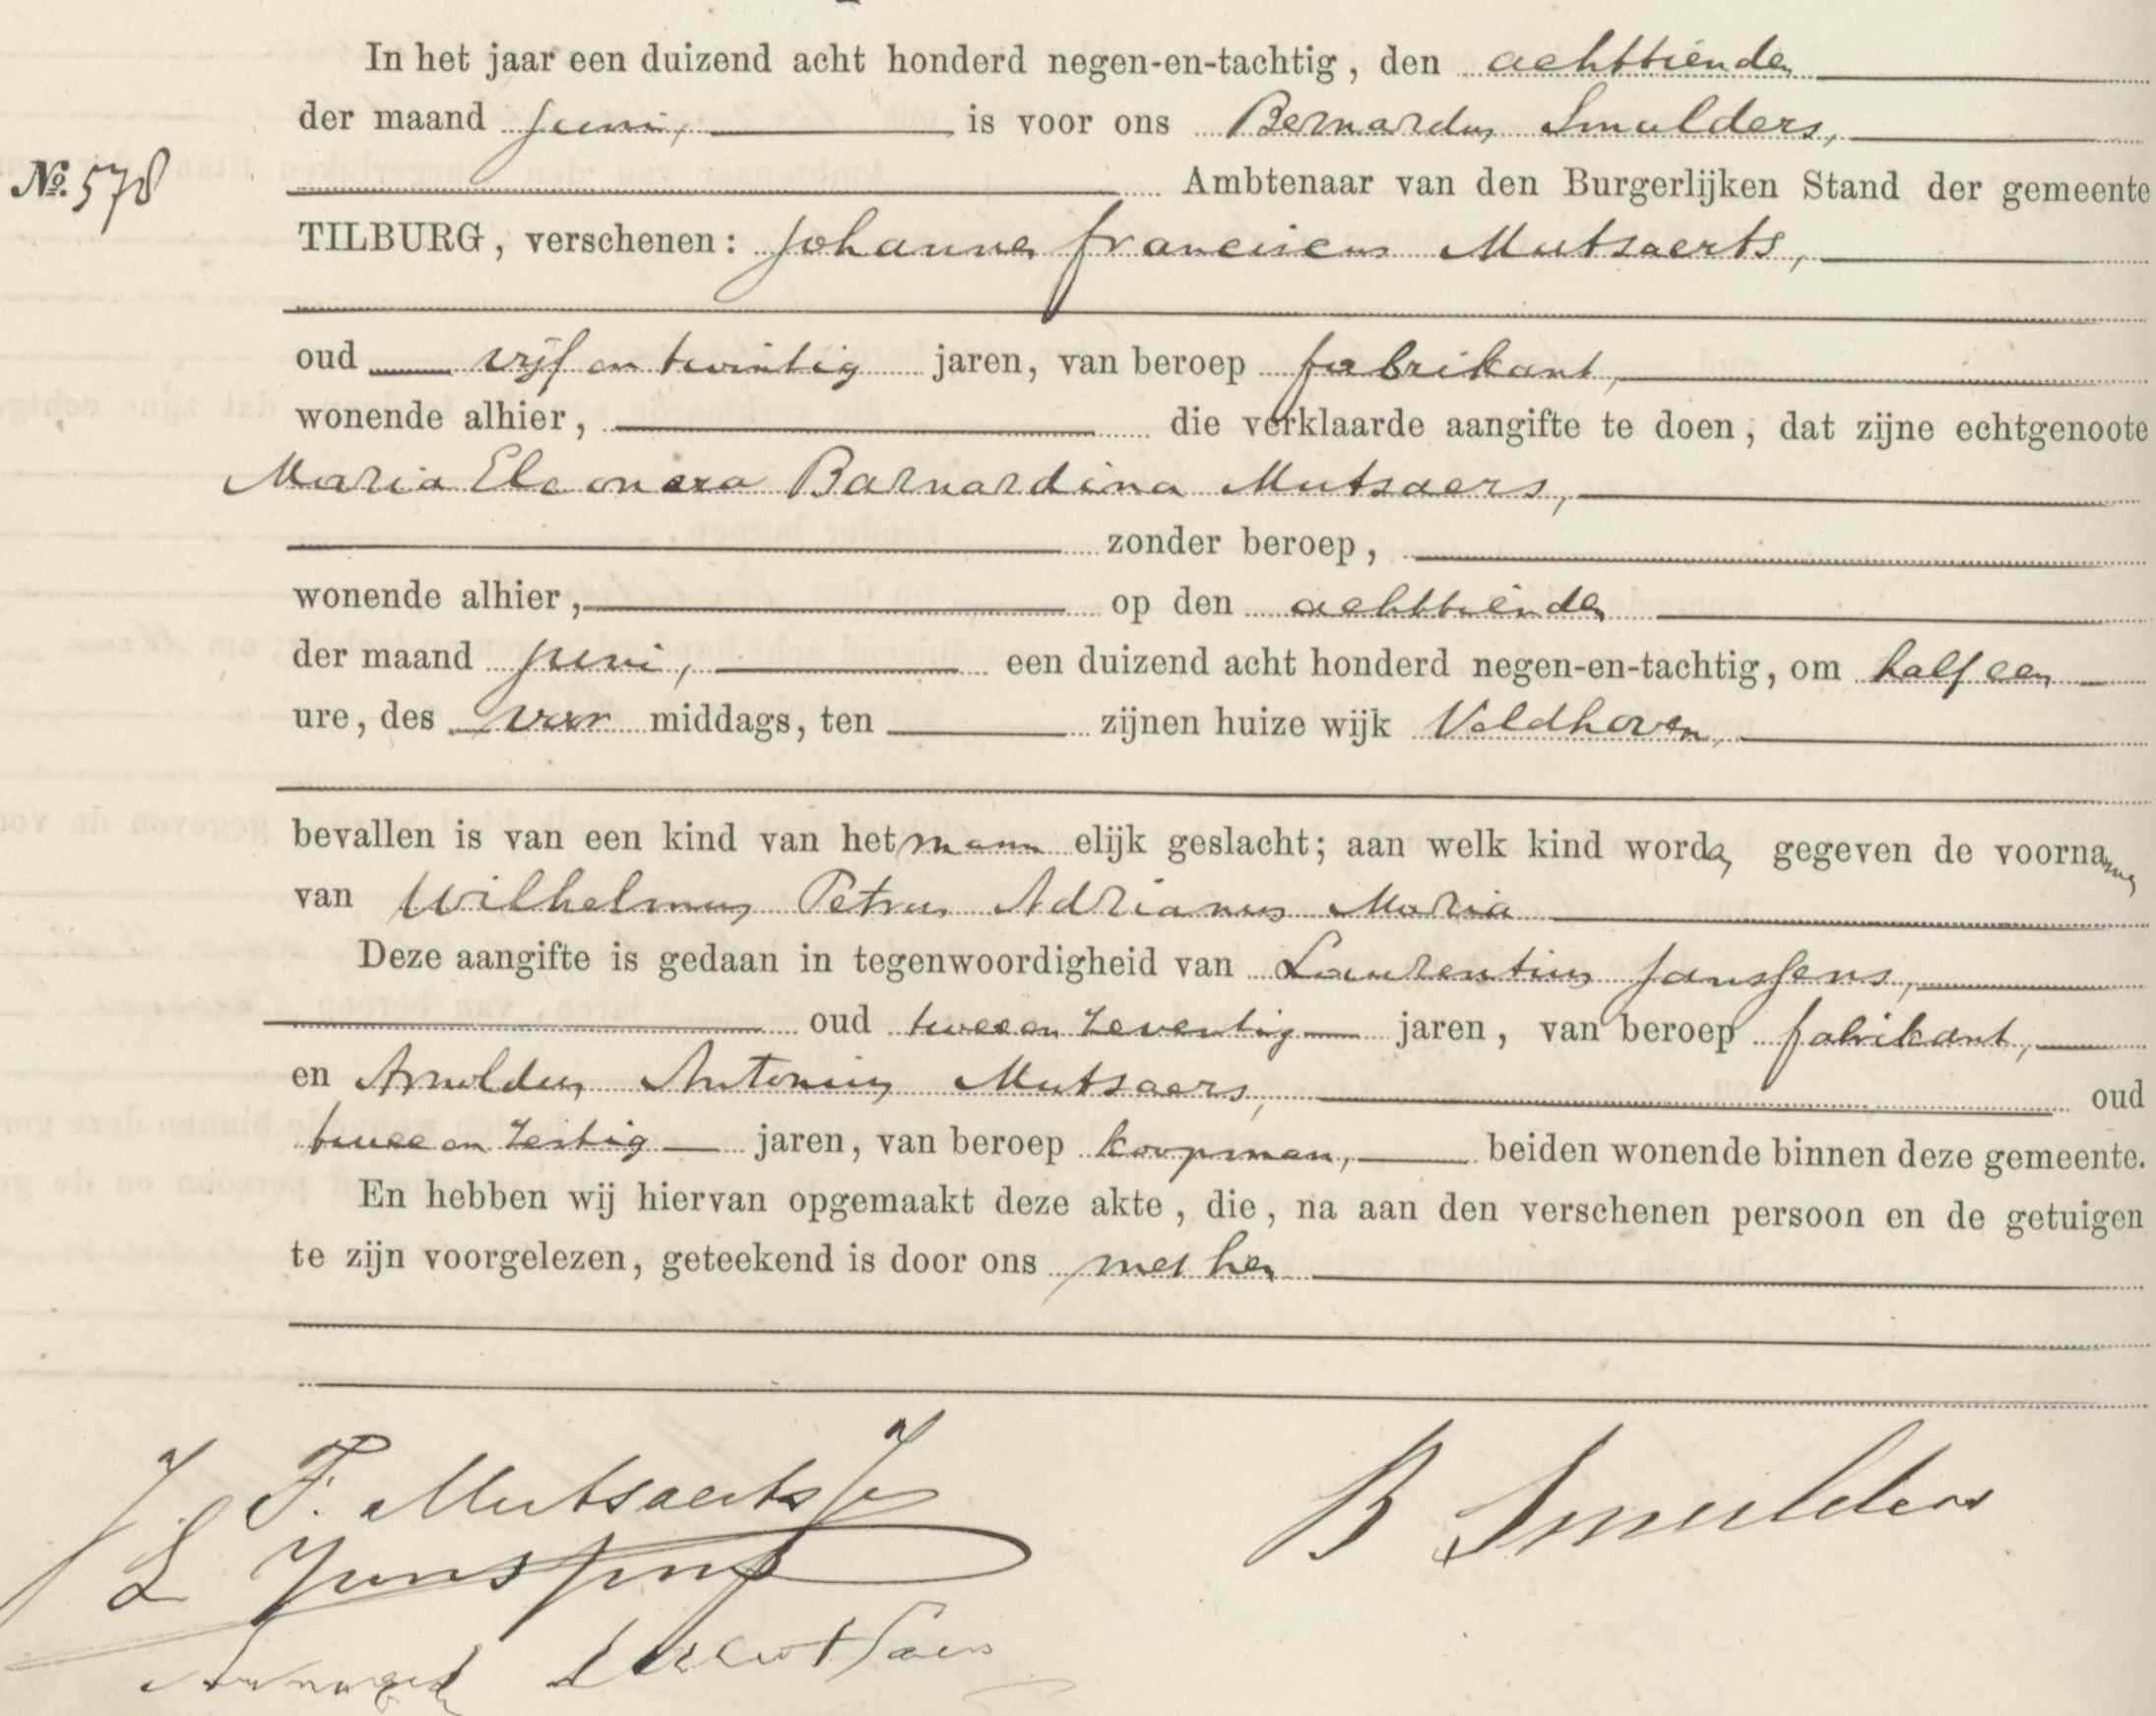 In het jaar een duizend acht honderd negen-en-tachtig, den achttienden
der maand Juni, is voor ons Bernardus Smulders,
No. 578
Ambtenaar van den Burgerlijken Stand der gemeente
TILBURG, verschenen: Johannes Franciscus Mutsaerts,
oud vijf en twintig jaren, van beroep fabrikant,
wonende alhier, die verklaarde aangifte te doen, dat zijne echtgenoote
Maria Eleonora Barnardina Mutsaers,
zonder beroep,
wonende alhier, op den achttienden
der maand Juni, een duizend acht honderd negen-en-tachtig, om half een
ure, des voor middags, ten zijnen huize wijk Veldhoven,
bevallen is van een kind van het mann elijk geslacht; aan welk kind worden gegeven de voornamen
van Wilhelmus Petrus Adrianus Maria
Deze aangifte is gedaan in tegenwoordigheid van Laurentius Janssens,
oud twee en zeventig jaren, van beroep fabrikant,
en Arnoldus Antonius Mutsaers, oud
twee en zestig jaren, van beroep koopman, beiden wonende binnen deze gemeente.
En hebben wij hiervan opgemaakt deze akte, die, na aan den verschenen persoon en de getuigen
te zijn voorgelezen, geteekend is door ons met hen
J. F. Mutsaerts Jz
B Smulders
L Janssens
Mutsaers